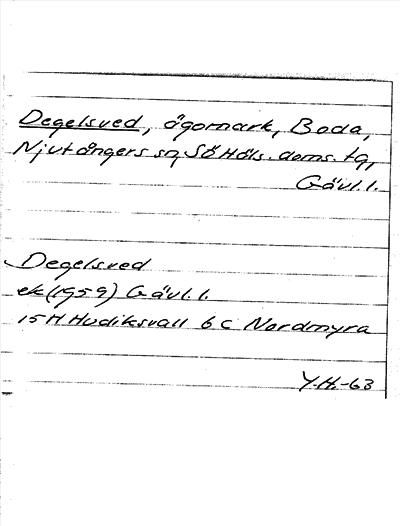 Degelsved, ägomark, Boda,
Njutångers sn, SöHäls. doms. tg,
Gävl. l.
Degelsved
ek (1959) Gävl. l.
15H Hudiksvall 6c Nordmyra
Y.H.-63